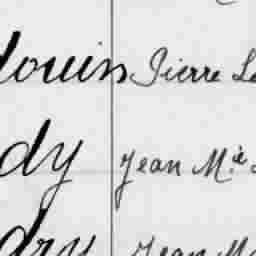 douin Pierre L
dy Jean M.ie
dry Jean M